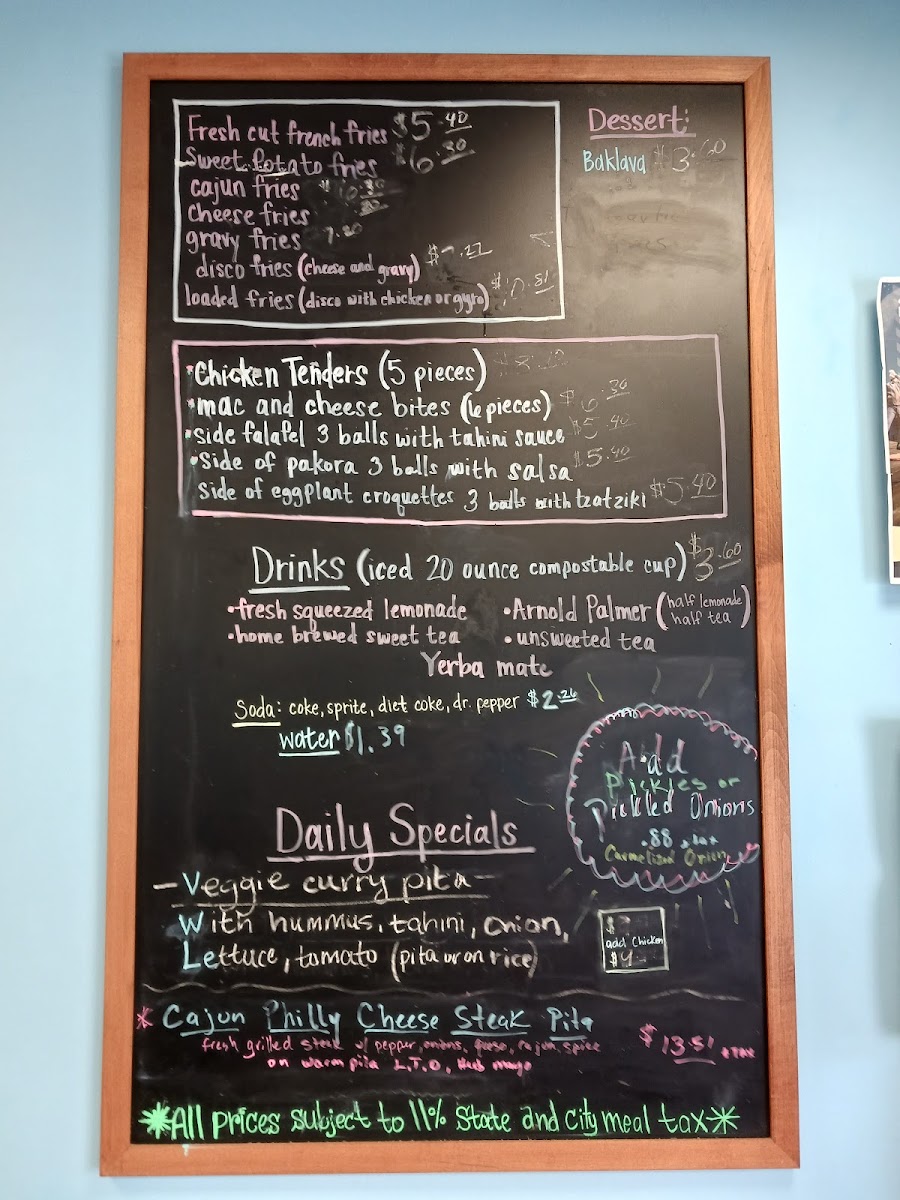 Fresh cut french fries $5.40
Sweet Potato fries $6.30
cajun fries $6.30
cheese fries
gravy fries 7.20
disco fries (cheese and gravy)
loaded fries (disco with chicken or gyro)
Dessert:
Baklava $3.60
•Chicken Tenders (5 pieces)
•mac and cheese bites (6 pieces) $6.30
•side falafel 3 balls with tahini sauce $5.40
•Side of pakora 3 balls with salsa $5.40
Side of eggplant croquettes 3 balls with tzatziki $5.40
Drinks (iced 20 ounce compostable cup) $3.60
•fresh squeezed lemonade
•Arnold Palmer (half lemonade half tea)
•home brewed sweet tea
•unsweeted tea
Yerba mate
Soda: coke, sprite, diet coke, dr. pepper $2.26
water $1.39
Add
Pickles or
Pickled Onions
.88 + tax
Carmelized Onion
Daily Specials
- Veggie curry pita -
With hummus, tahini, onion,
Lettuce, tomato (pita or on rice)
add Chicken
$4
* Cajun Philly Cheese Steak Pita
fresh grilled steak w/ pepper, onions, queso, cajun spice
on warm pita L.T.O,
$13.51 + tax
*All prices subject to 11% State and City meal tax*